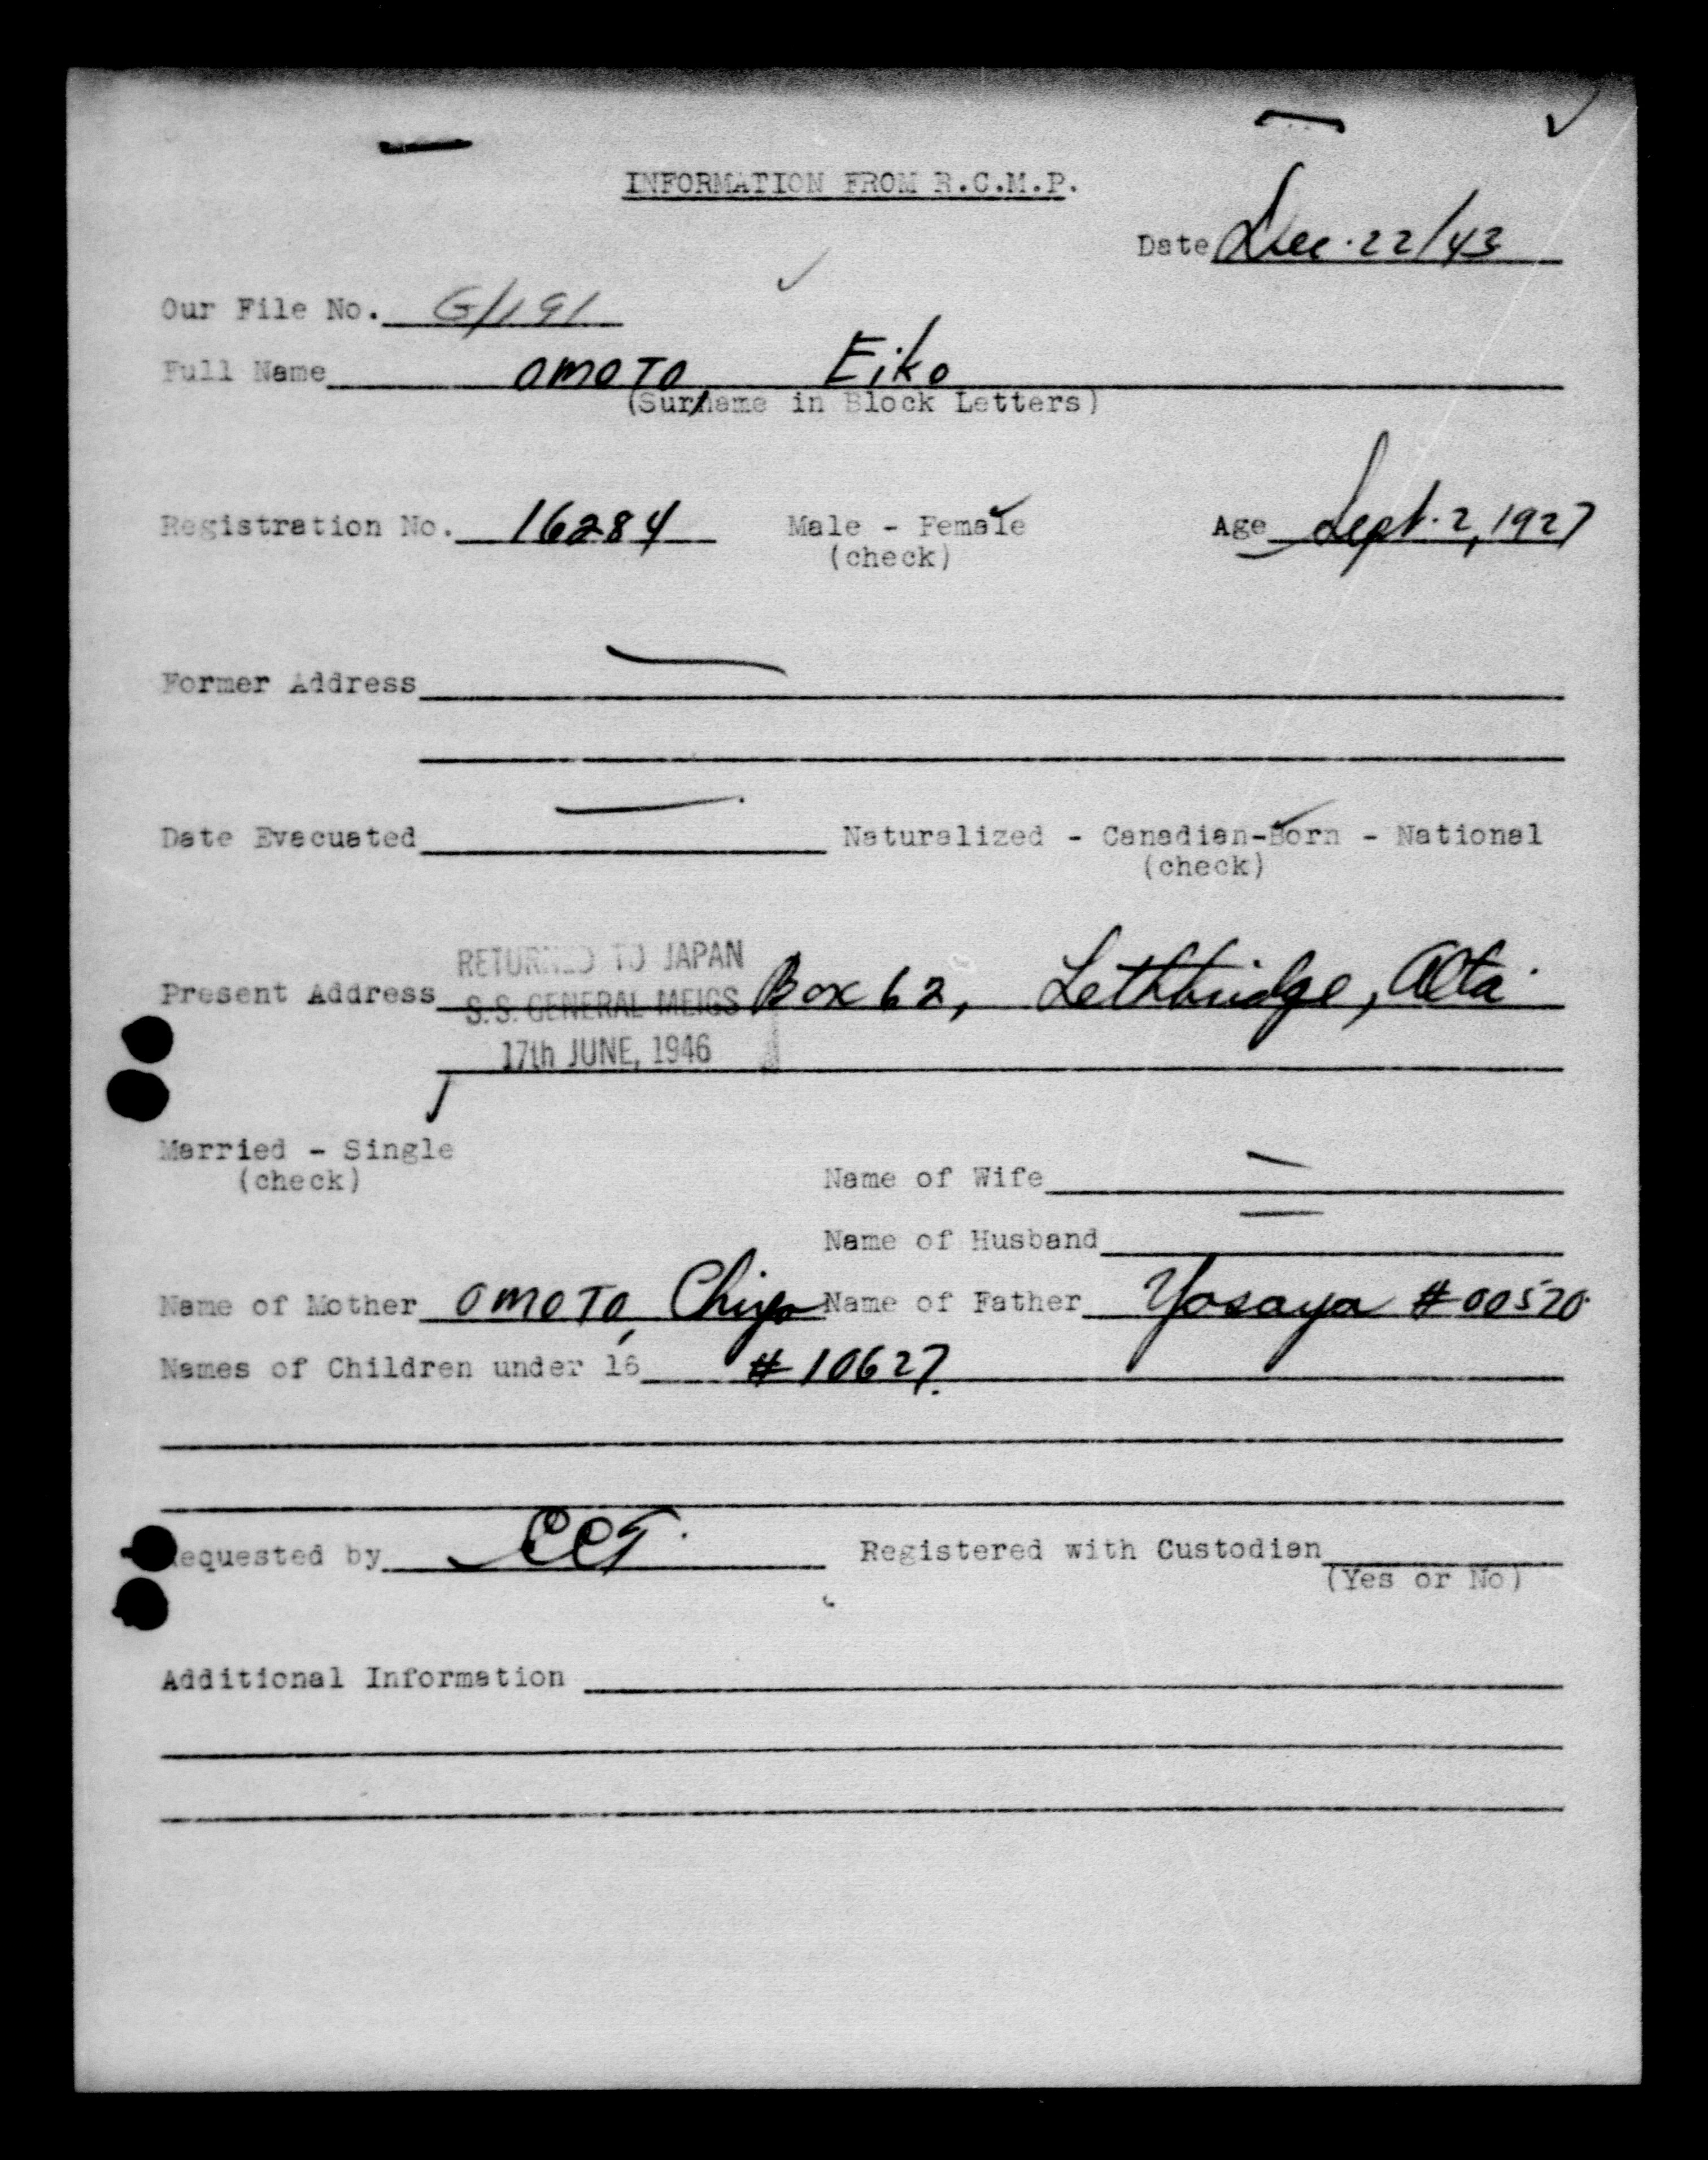 INFORMATION FROM R.C.M.P.
Date Dec. 22/43
Our File No. G/191
Full Name OMOTO, Eiko
(Surname in Block Letters)
Registration No. 16284 Male - Female Age Sept. 2, 1927
(check)
Former Address
Date Evacuated Naturalized - Canadian-Born - National
(check)
RETURNED TO JAPAN
Present Address S.S. GENERAL MEIGS Box 62, Lethbridge, Alta.
17th JUNE, 1946
Married - Single
(check)
Name of Wife
Name of Husband
Name of Mother OMOTO, Chiyo Name of Father Yosaya #00520
Names of Children under 16 #10627.
Requested by Registered with Custodian
(Yes or No)
Additional Information